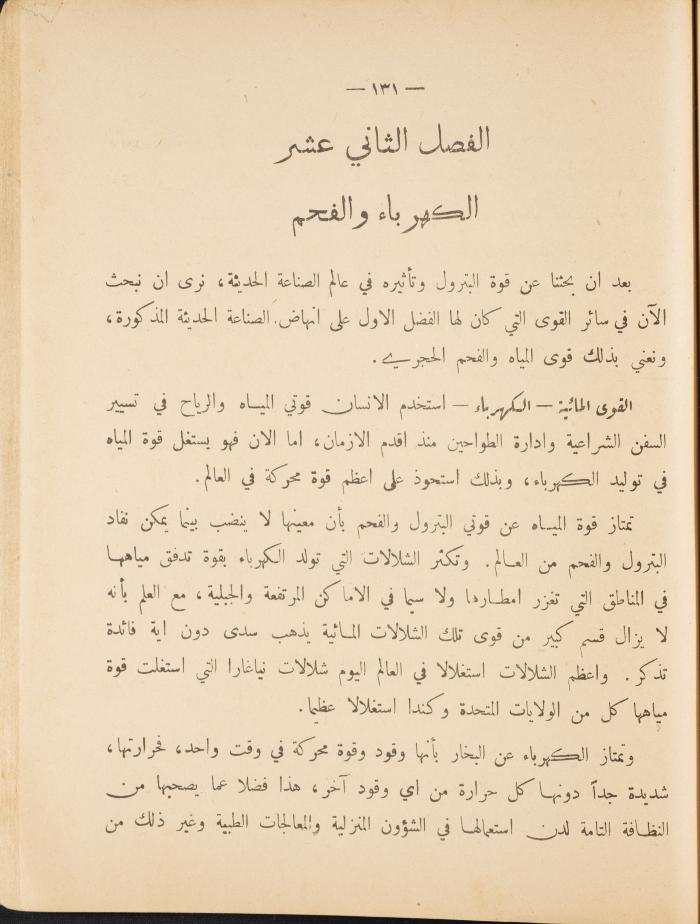 — ١٣١ —
الفصل الثاني عشر
الكهرباء والفحم
بعد ان بحثنا عن قوة البترول وتأثيره في عالم الصناعة الحديثة، نرى ان نبحث
الآن في سائر القوى التي كان لها الفضل الاول على انهاض الصناعة الحديثة المذكورة،
ونعني بذلك قوى المياه والفحم الحجري.
القوى المائية — الكهرباء — استخدم الانسان قوتي المياه والرياح في تسيير
السفن الشراعية وادارة الطواحين منذ اقدم الازمان، اما الان فهو يستغل قوة المياه
في توليد الكهرباء، وبذلك استحوذ على اعظم قوة محركة في العالم.
تمتاز قوة المياه عن قوتي البترول والفحم بأن معينها لا ينضب بينما يمكن نفاد
البترول والفحم من العالم. وتكثر الشلالات التي تولد الكهرباء بقوة تدفق مياهها
في المناطق التي تغزر امطارها ولا سيما في الاماكن المرتفعة والجبلية، مع العلم بأنه
لا يزال قسم كبير من قوى تلك الشلالات المائية يذهب سدى دون اية فائدة
تذكر. واعظم الشلالات استغلالا في العالم اليوم شلالات نياغارا التي استغلت قوة
مياهها كل من الولايات المتحدة وكندا استغلالا عظيما.
وتمتاز الكهرباء عن البخار بأنها وقود وقوة محركة في وقت واحد، فحرارتها،
شديدة جداً دونها كل حرارة من اي وقود آخر، هذا فضلا عما يصحبها من
النظافة التامة لدن استعمالها في الشؤون المنزلية والمعالجات الطبية وغير ذلك من